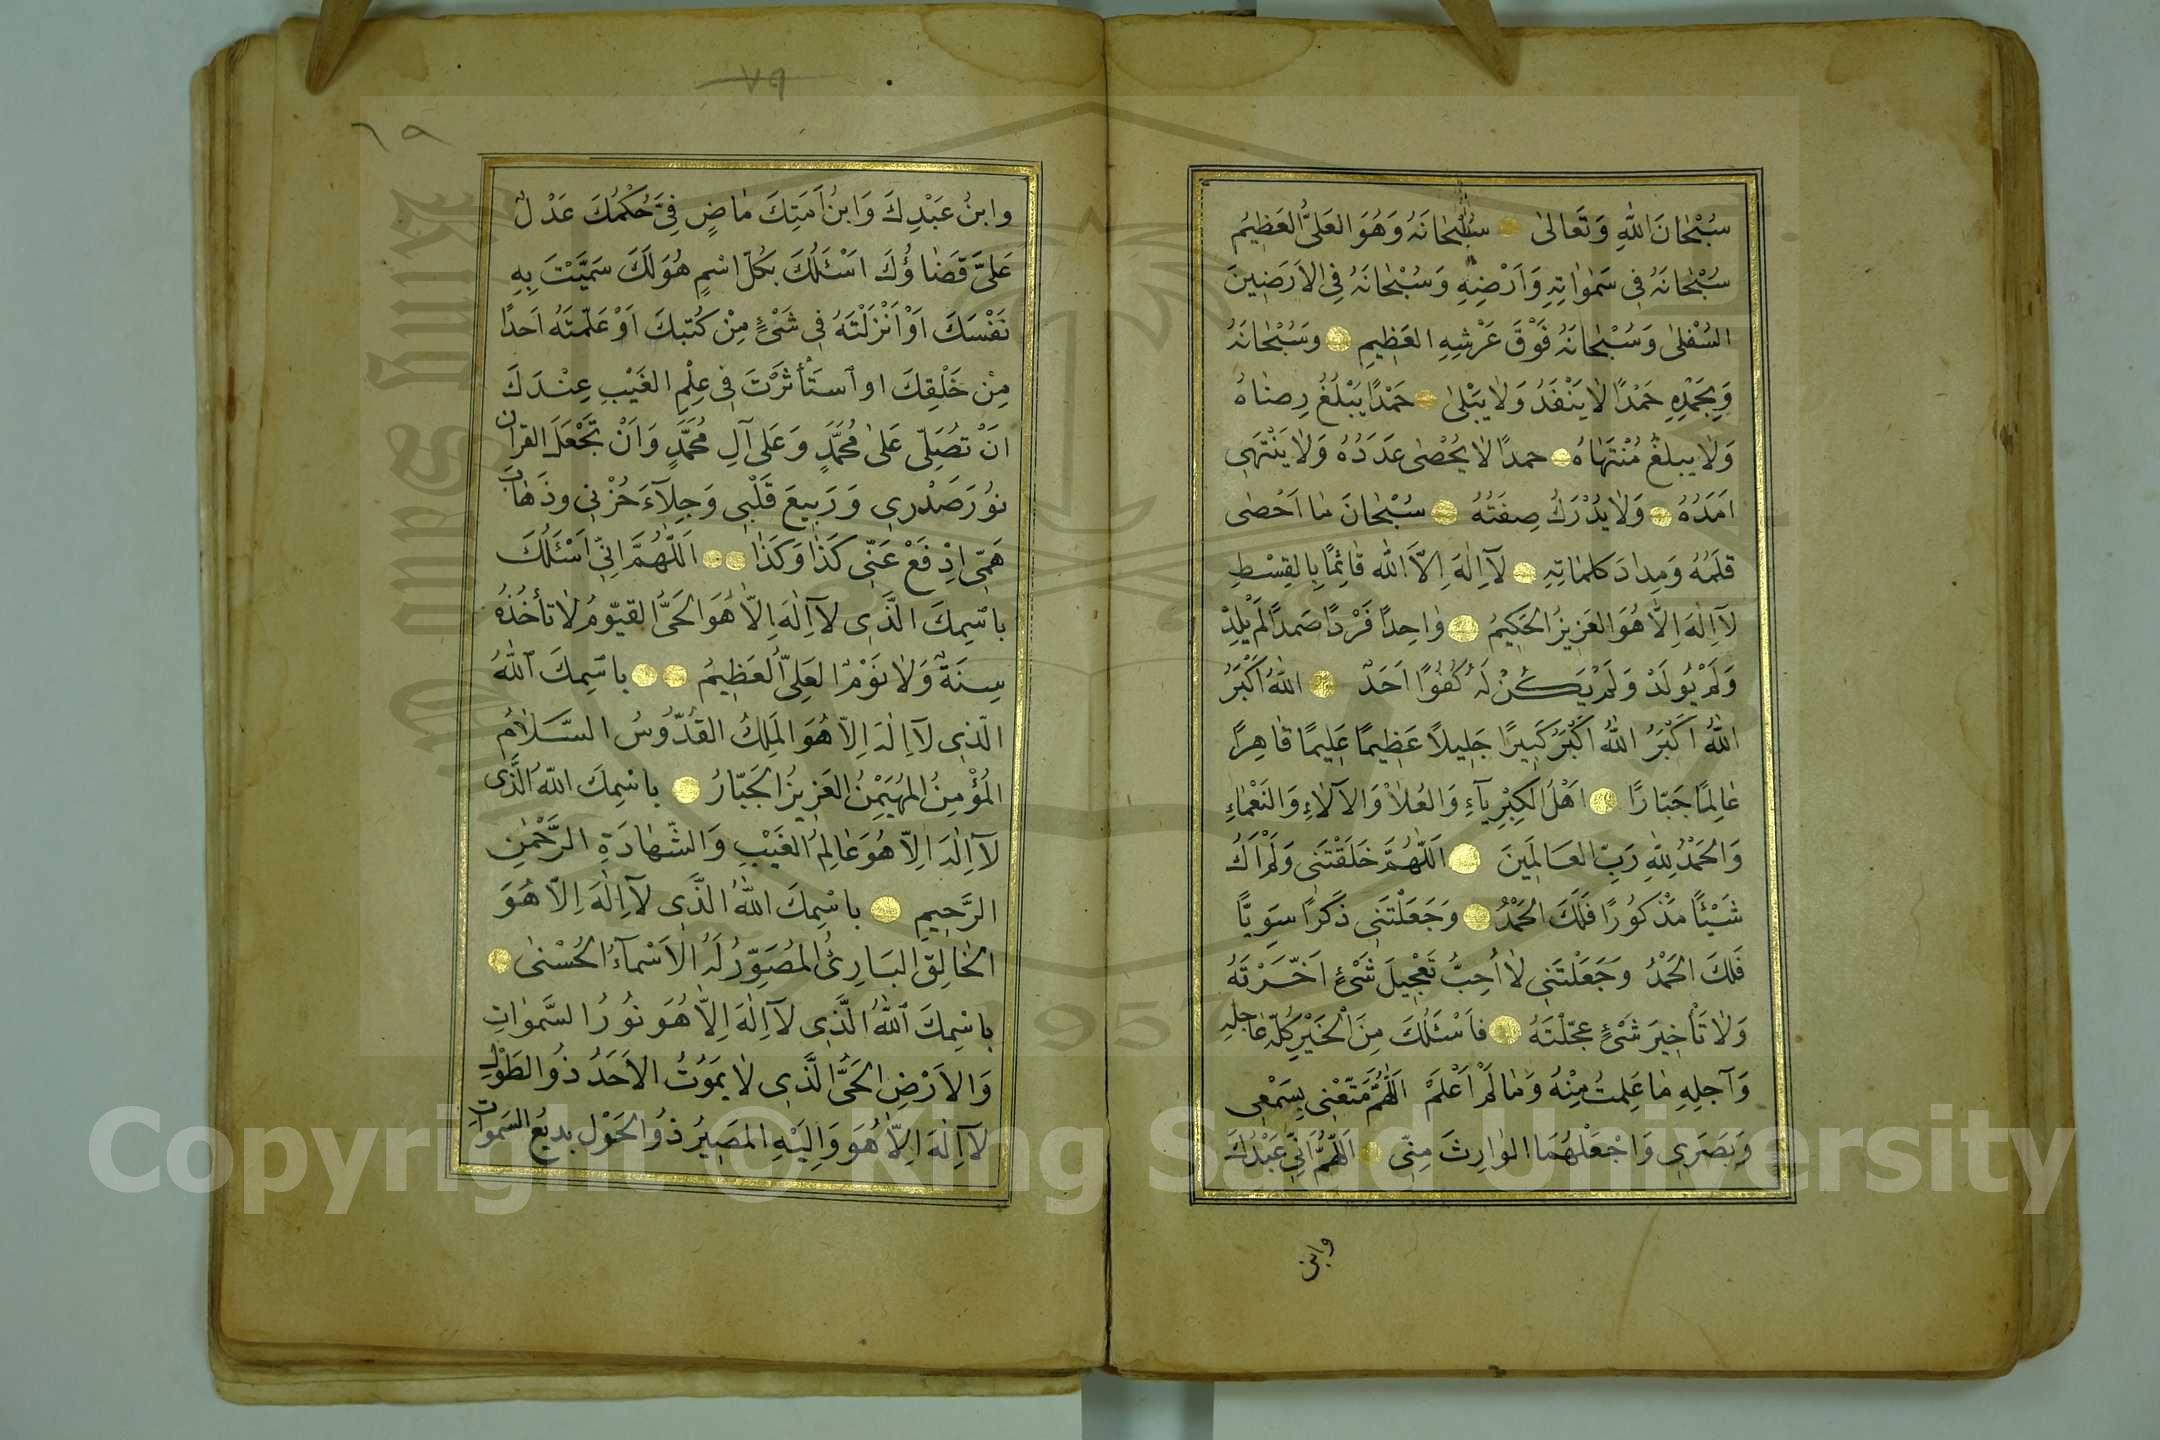 سُبْحَانَ اللّٰهِ وَتَعَالىٰ سُبْحَانَهُ وَهُوَ العَلِىُّ العَظِيمُ
سُبْحَانَهُ فِى سَمٰوَاتِهِ وَاَرْضِهِ وَسُبْحَانَهُ فِى الاَرَضِينَ
السُّفْلىٰ وَسُبْحَانَهُ فَوْقَ عَرْشِهِ العَظِيمِ وَسُبْحَانَهُ
وَبِحَمْدِهِ حَمْدًا لاٰ يَنْفَدُ وَلاٰ يَبْلىٰ حَمْدًا يَبْلُغُ رِضٰاهُ
وَلاٰ يبلغُ مُنْتَهٰاهُ حمدًا لاٰ يُحْصٰى عَدَدُهُ وَلاٰ يَنْتَهِى
اَمَدُهُ وَلاٰ يُدْرَكُ صِفَتُهُ سُبْحَانَ مٰا اَحْصٰى
قلَمُهُ وَمِدادَ كلمٰاتِهِ لآ اِلٰهَ اِلاَّ اللّٰه قٰائِمًا بِالقِسْطِ
لآ اِلٰهَ اِلاّٰ هُوَ العَزِيزُ الحَكِيمُ وٰاحِدًا فَرْدًا صَمدًا لَمْ يَلِدْ
وَلَمْ يُولَدْ وَلَمْ يَكُنْ لَهُ كُفُوًا اَحَدٌ اللّٰهُ اَكْبَرُ
اللّٰهُ اَكْبَرُ اللّٰهُ اَكْبَرُ كَبِيرًا جَلِيلاً عَظِيمًا عَلِيمًا قٰاهِرًا
عٰالِمًا جَبّارًا اَهْلُ الكِبْرِيآءِ وَالعُلاٰ وَالآلاٰءِ وَالنَعْمٰاءِ
وَالحَمْدُ لِلّٰهِ رَبِّ العَالَمِينَ اَللّٰهُمَّ خَلَقْتَنِى وَلَمْ اَكُ
شَيْئًا مَذْكُورًا فَلَكَ الحَمْدُ وَجَعَلْتَنِى ذَكَرًا سَوِيًّا
فَلَكَ الحَمْدُ وَجَعَلْتَنِى لاٰ اُحِبُّ تَعْجِيلَ شَىْءٍ اَخَّرْتَهُ
وَلاٰ تَأخِيرَ شَىْءٍ عجّلْتَهُ فاَسْئَلُكَ مِنَ الْخَيْرِ كُلِّهِ عٰاجِلِهِ
وَآجِلِهِ مٰا عَلِمتُ مِنْهُ وَمٰا لَمْ اَعْلَمْ اَللّٰهُمَّ مَتّعْنِى بِسَمْعِى
وَبَصَرِى وَاجْعَلْهُمَا الوٰارِثَ مِنّى اَللّٰهُمَّ اِنِّى عَبْدُكَ
وابن
٧٩
٦٩
وابنُ عَبْدِكَ وَابنُ اَمَتِكَ مٰاضٍ فِىَّ حُكْمُكَ عَدْلٌ
عَلَىَّ قَضٰاؤُكَ اسْئَلُكَ بكُلّ اسْمٍ هُوَ لَكَ سَمَّيْتَ بِهِ
نَفْسَكَ اَوْ اَنْزَلْتَهُ فِى شَىْءٍ مِنْ كُتبكَ اَوْ عَلّمتَهُ اَحدًا
مِنْ خَلْقِكَ او استَأثَرْتَ فِى عِلْمِ الغَيْبِ عِنْدَكَ
انَ تُصَلِّى عَلىٰ مُحَمَّدٍ وَعَلى آلِ مُحَمَّدٍ وَاَنْ تَجْعَلَ القران
نوُرَ صَدْرِى وَرَبِيعَ قَلْبِى وَجِلآءَ حُزْنِى وذَهٰابَ
هَمّى اِدْفَعْ عَنّى كَذٰا وَكَذٰا اَللّٰهُمَّ اِنّى اَسْئَلُكَ
باسْمِكَ الَّذِى لآ اِلٰهَ اِلاّٰ هُوَ الحَىُّ القيّومُ لاٰ تأخُذُهُ
سِنَةٌ وَلاٰ نَوْمٌ العَلِىُّ العَظِيمُ باسْمِكَ اللّٰهُ
الّذِى لآ اِلٰهَ اِلاّ هُوَ المَلِكُ القُدُّوسُ السَّلاٰمُ
المُؤْمِنُ المُهَيْمِنُ العَزِيزُ الجَبّارُ باسْمِكَ اللّٰهُ الَّذِى
لآ اِلٰهَ اِلاّ هُوَ عٰالِمُ الغَيْبِ وَالشَّهٰادَةِ الرَّحْمٰنِ
الرَّحِيمِ باسْمِكَ اللّٰهُ الَّذِى لآ اِلٰهَ اِلاّ هُوَ
الخٰالِقُ البَارِئُ المُصَوِّرُ لَهُ الاَسْمآءُ الحُسْنىٰ
باسْمِكَ اللّٰهُ الَّذِى لآ اِلٰهَ اِلاّٰ هُوَ نوُرُ السَّموٰاتِ
وَالاَرْضِ الحَىُّ الَّذِى لاٰ يمَوُتُ الاَحَدُ ذُو الطَوْلِ
لآ اِلٰهَ اِلاّٰ هُوَ وَاِلَيْهِ المصِيرُ ذُو الحَوْلِ بديعُ السَموٰاتِ
King Saud University
1957
Copyright © King Saud University